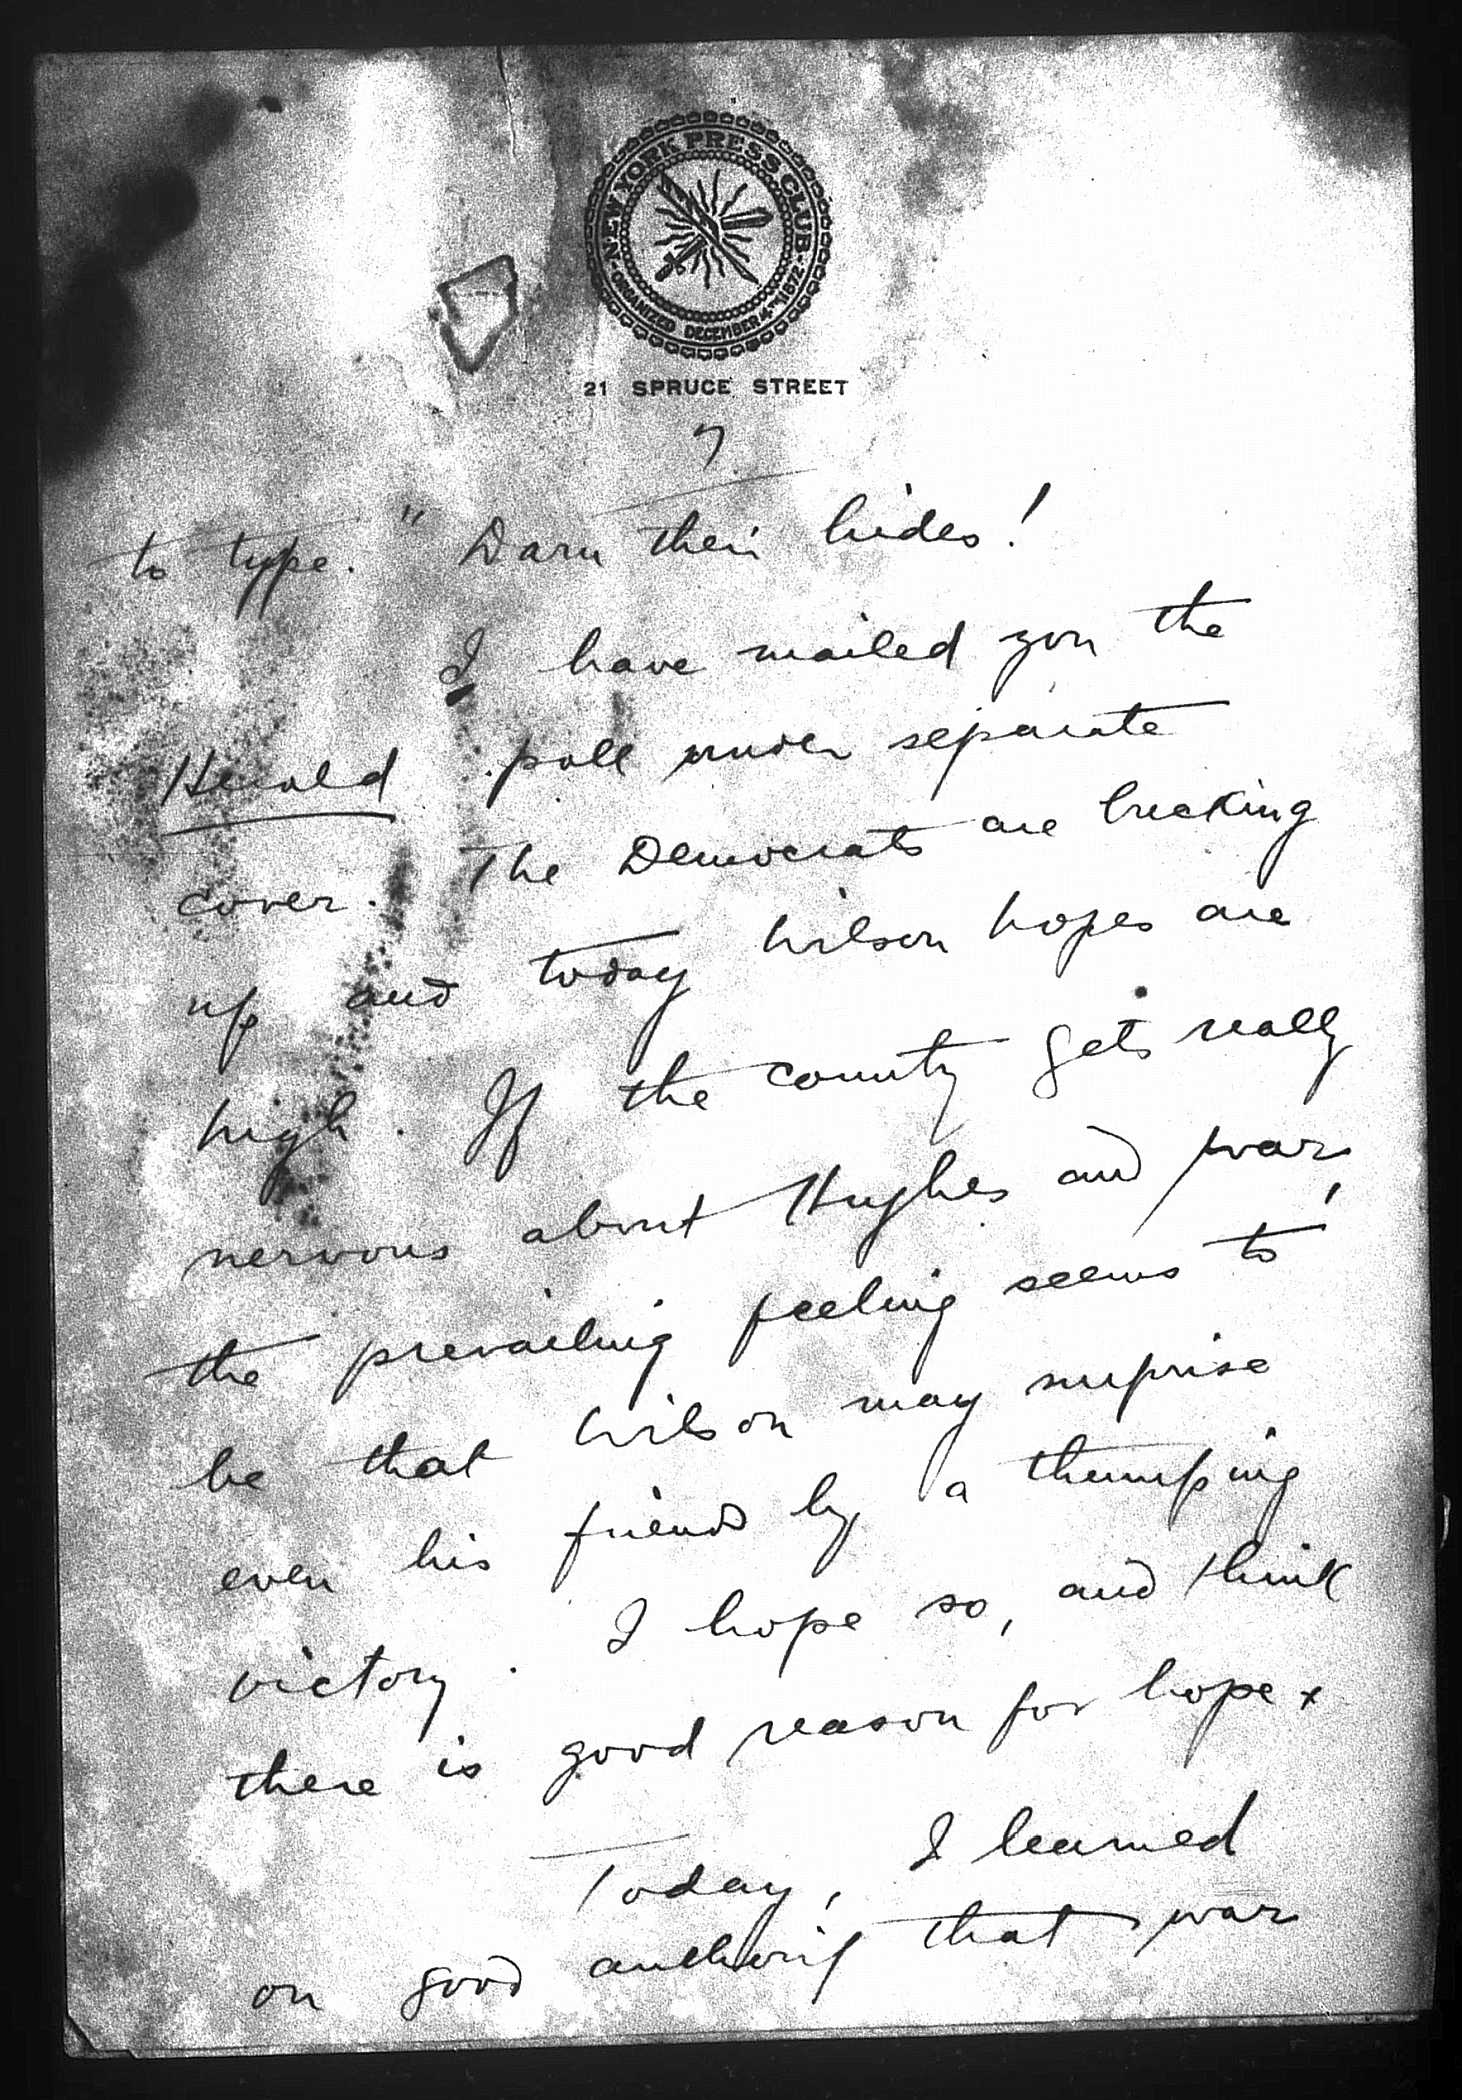 NEW YORK PRESS CLUB
ORGANIZED DECEMBER 4TH 1872
21 SPRUCE STREET
7
to type." Darn their hides!
I have mailed you the
Herald poll under separate
cover. The Democrats are bucking
up and today Wilson hopes are
high. If the county gets really
nervous about Hughes and war,
the prevailing feeling seems to
be that Wilson may surprise
even his friends by a thumping
victory. I hope so, and think
there is good reason for hope x
Today, I learned
on good authority that war